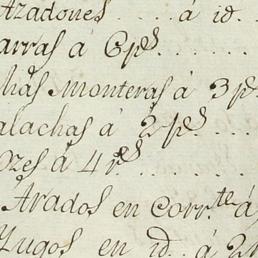 Azadones . . . . . á id.
arras á 6 p.s . . . . . .
has monteras á 3 p.
alachas á 2 p.s . . .
ozes á 4 r.s . . . . . .
Arados en corr.te á
Yugos en id.. á 2